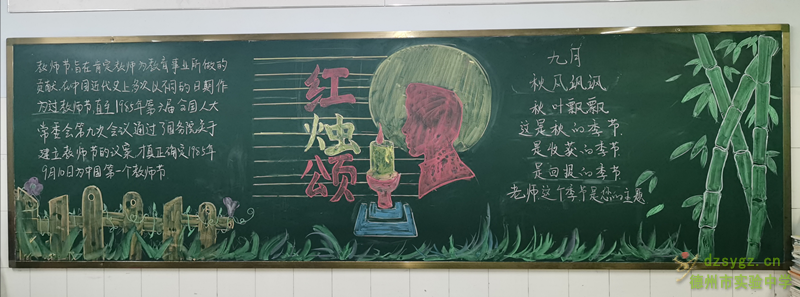 教师节,旨在肯定教师为教育事业所做的
贡献.在中国近代史上多次以不同的日期作
为过教师节.直至1985年第六届全国人大
常委会第九次会议通过了国务院关于
建立教师节的议案,才真正确定1985年
9月10日为中国第一个教师节
红烛颂
九月
秋风飒飒
秋叶飘飘
这是秋的季节
是收获的季节
是回报的季节
老师这个季节是您的主题
dzsygz.cn
德州市实验中学